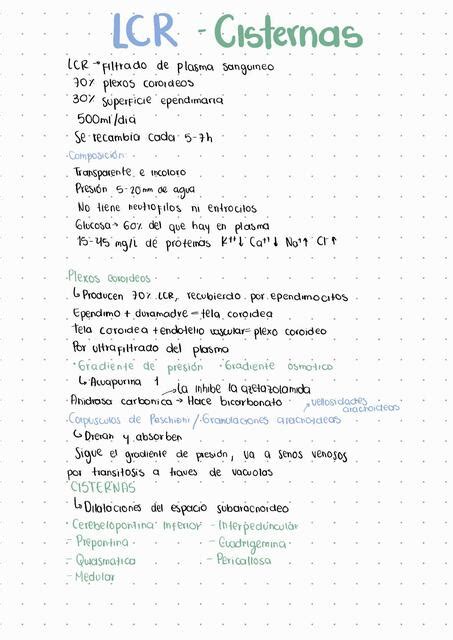 LCR - Cisternas
LCR → Filtrado de plasma sanguineo
70% plexos coroideos
30% superficie ependimaria
500ml/dia
Se recambia cada 5-7h
Composición
Transparente e incoloro
Presión 5-20mm de agua
No tiene neutrofilos ni eritrocitos
Glucosa → 60% del que hay en plasma
15-45 mg/L de proteinas K++↓ Ca++↓ Na+↑ Cl↑
Plexos coroideos
↳ Producen 70% LCR, recubierto por ependimocitos
Ependimo + duramadre = tela coroidea
tela coroidea + endotelio vascular = plexo coroideo
Por ultrafiltrado del plasma
· Gradiente de presión · Gradiente osmotico
↳ Acuapurina 1
→ La inhibe la azetazolamida
Anidrasa carbonica → Hace bicarbonato
↗ vellosidades aracnoideas
Corpusculos de Pacchioni / Granulaciones aracnoideas
↳ Drenan y absorben
Sigue el gradiente de presión, va a senos venosos
por transitosis a traves de vacuolas
CISTERNAS
↳ Dilataciones del espacio subaracnoideo
· Cerebelopontina inferior - Interpeduncular
- Prepontina - Cuadrigemina
- Quiasmatica - Pericallosa
- Medular